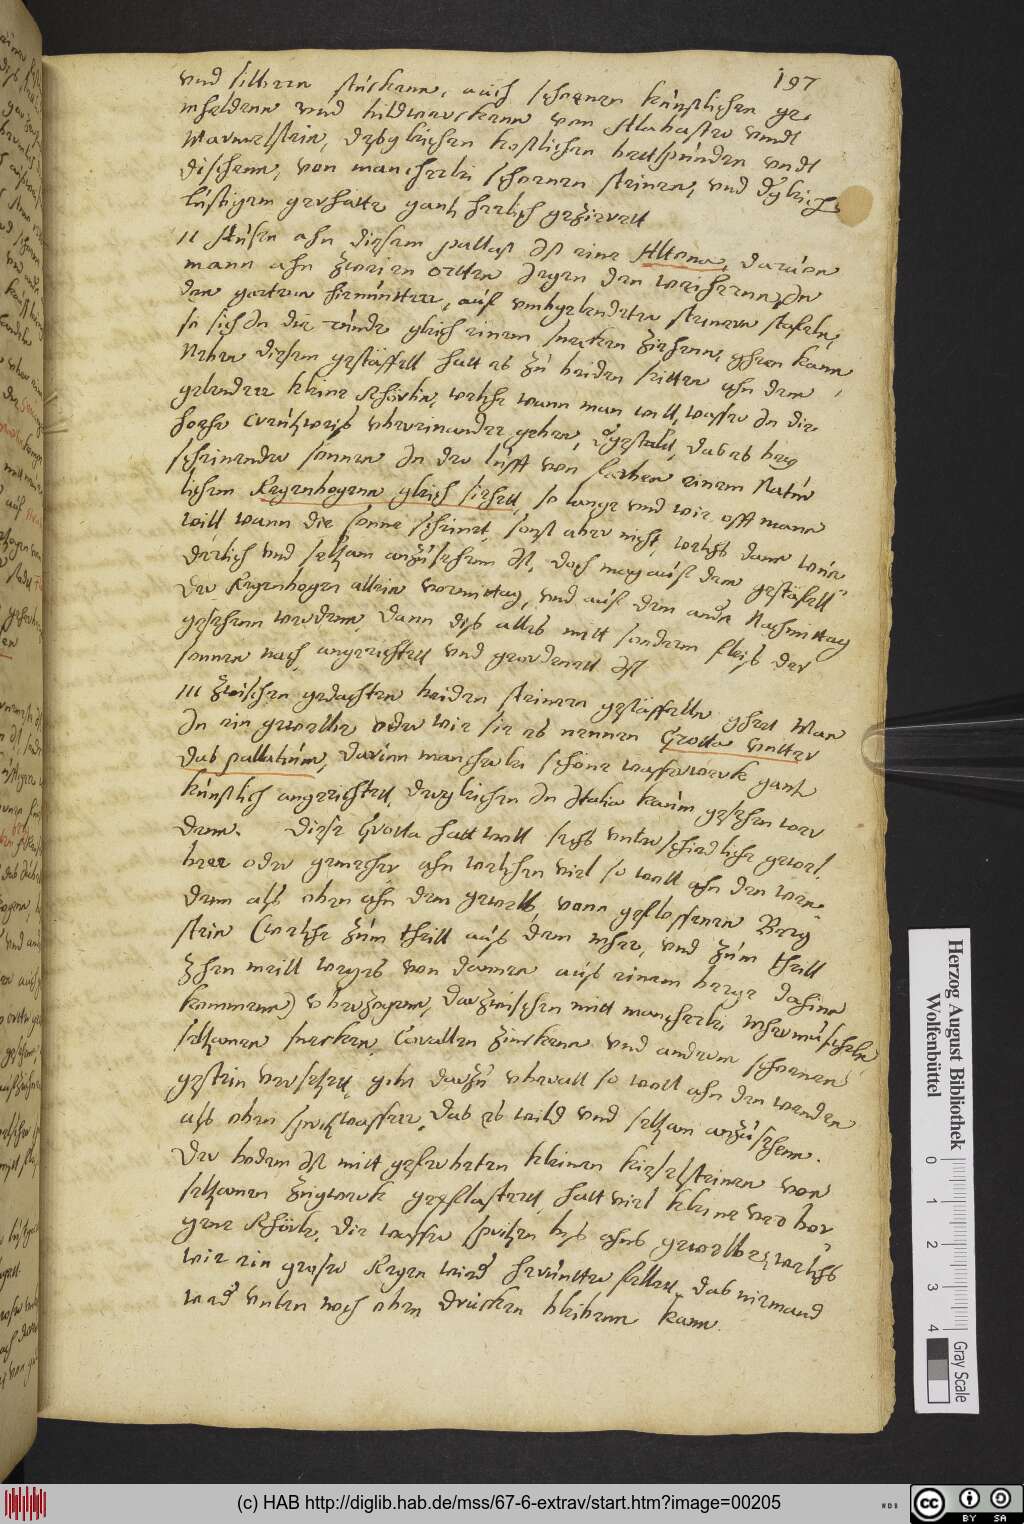 197
vnd silbern stückenn, auch schoenen künstlichen ge-
mheldenn vnd bildwerckenn von Alabaster vnndt
Marmelstein, desgleichen kostlichen bettspünden vndt
dischenn, von mancherlei schoenen steinen, vnd dergleichen
lustigem gerhatte gantz herlich gezierett
II Aussen ahn diesem pallast ist eine Altona, daruon
mann ahn zweien ortten gegen den weihern, in
den gartenn hienuntter, auf vmbgelendeten steinern stafeln,
so sich in die runde gleich einem snecken ziehenn, ghen kann
Neben diesem gestäffell hatt es zu beiden seitten ahn dem
gelender kleine Rhörlin, welche wann man will, wasser in die
hoehe Creutzweis vbereinander geben, dergestalt, das es beÿ
scheinender sonnen in der lufft von farben einem Natur
lichem Regenbogenn gleich siehett, so lange vnd wie offt mann
will, wann die sonne scheinet, sonst aber nicht, welchs dann wun
derlich vnd seltzam anzusehenn ist, doch mag auf dem gestäfell
der Regenbogen allein vormittag, vnd auf dem ander Nachmittag
gesehenn werdenn, dann dis alles mitt sonderm fleis der
sonnen nach angerichtett vnd geordenett ist
III Zwischen gedachten beiden steinern gestäffelln ghet Man
in ein gewelbe oder wie sie es nennen Grotta vntter
das pallatium, darinn mancherlei schöne wasserwerk gantz
künstlich angerichtett, dergleichen in Italia kaum gesehen wer
denn. Diese Grotta hatt woll sechs vnterschiedliche gewel-
ber oder gemecher ahn welchen viel so woll ahn den wen-
denn als oben ahn dem gewelb, vonn geflossenen Berg
stein (welche zum theill aus dem mher, vnd zum theill
zhen meill weges von dannen aus einem berge dahinn
kommenn) vberzogenn, darzwischen mitt mancherlei mhermuscheln
seltzamen snecken, Corallen zinckenn vnd anderm schoenen
gestein versetzett, geht darzu vberall so woll ahn den wenden
als oben spritzwasser, das es wild vnd seltzam anzusehenn.
Der bodem ist mitt geferbeten kleinen kieselsteinen von
seltzamen zugwerk gepflastertt, hatt viel kleine verbor-
gene Rhörle, die wasser spritzen bis ahns gewelb, welchs
wie ein groser Regen wieder herunntter fellett, das niemand
weder vnten noch oben drucken bleibenn kann.
Herzog August Bibliothek
Wolfenbüttel
0 1 2 3 4
Gray Scale
(c) HAB http://diglib.hab.de/mss/67-6-extrav/start.htm?image=00205
WDB
cc BY SA